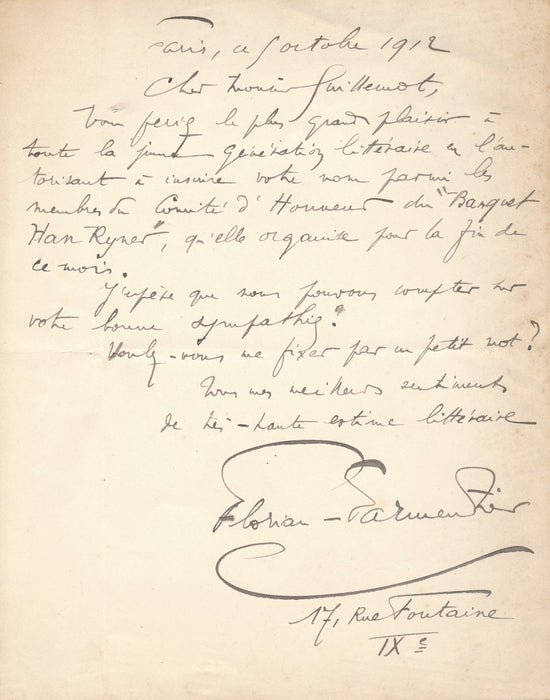 Paris, ce 5 octobre 1912
Cher Monsieur Guillemot,
Vous feriez le plus grand plaisir à
toute la jeune génération littéraire en l'au-
torisant à inscrire votre nom parmi les
membres du Comité d'Honneur du "Banquet
Han Ryner", qu'elle organise pour la fin de
ce mois.
J'espère que nous pouvons compter sur
votre bonne sympathie?
Voulez-vous me fixer par un petit mot?
Tous mes meilleurs sentiments
de très-haute estime littéraire
Florian-Parmentier
17, Rue Fontaine
IXe